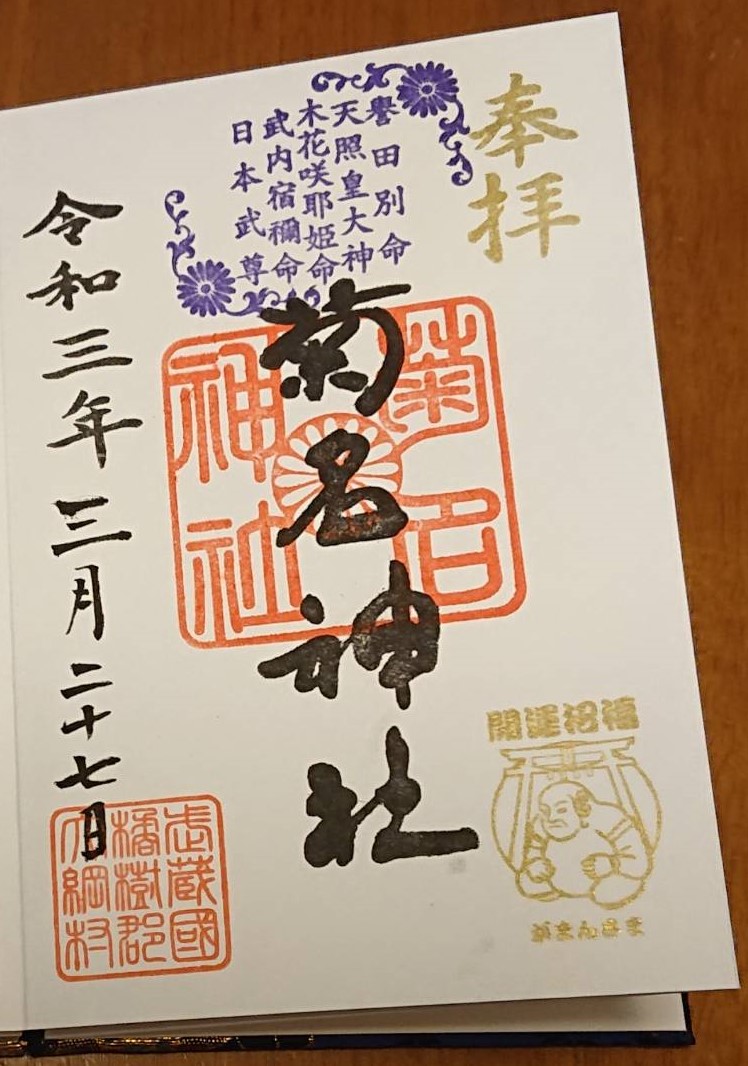 奉拝
譽田別命
天照皇大神
木花咲耶姫命
武内宿禰命
日本武尊
菊名神社
菊名
神社
開運招福
がまんさま
令和三年三月二十七日
武蔵國
橘樹郡
大綱村